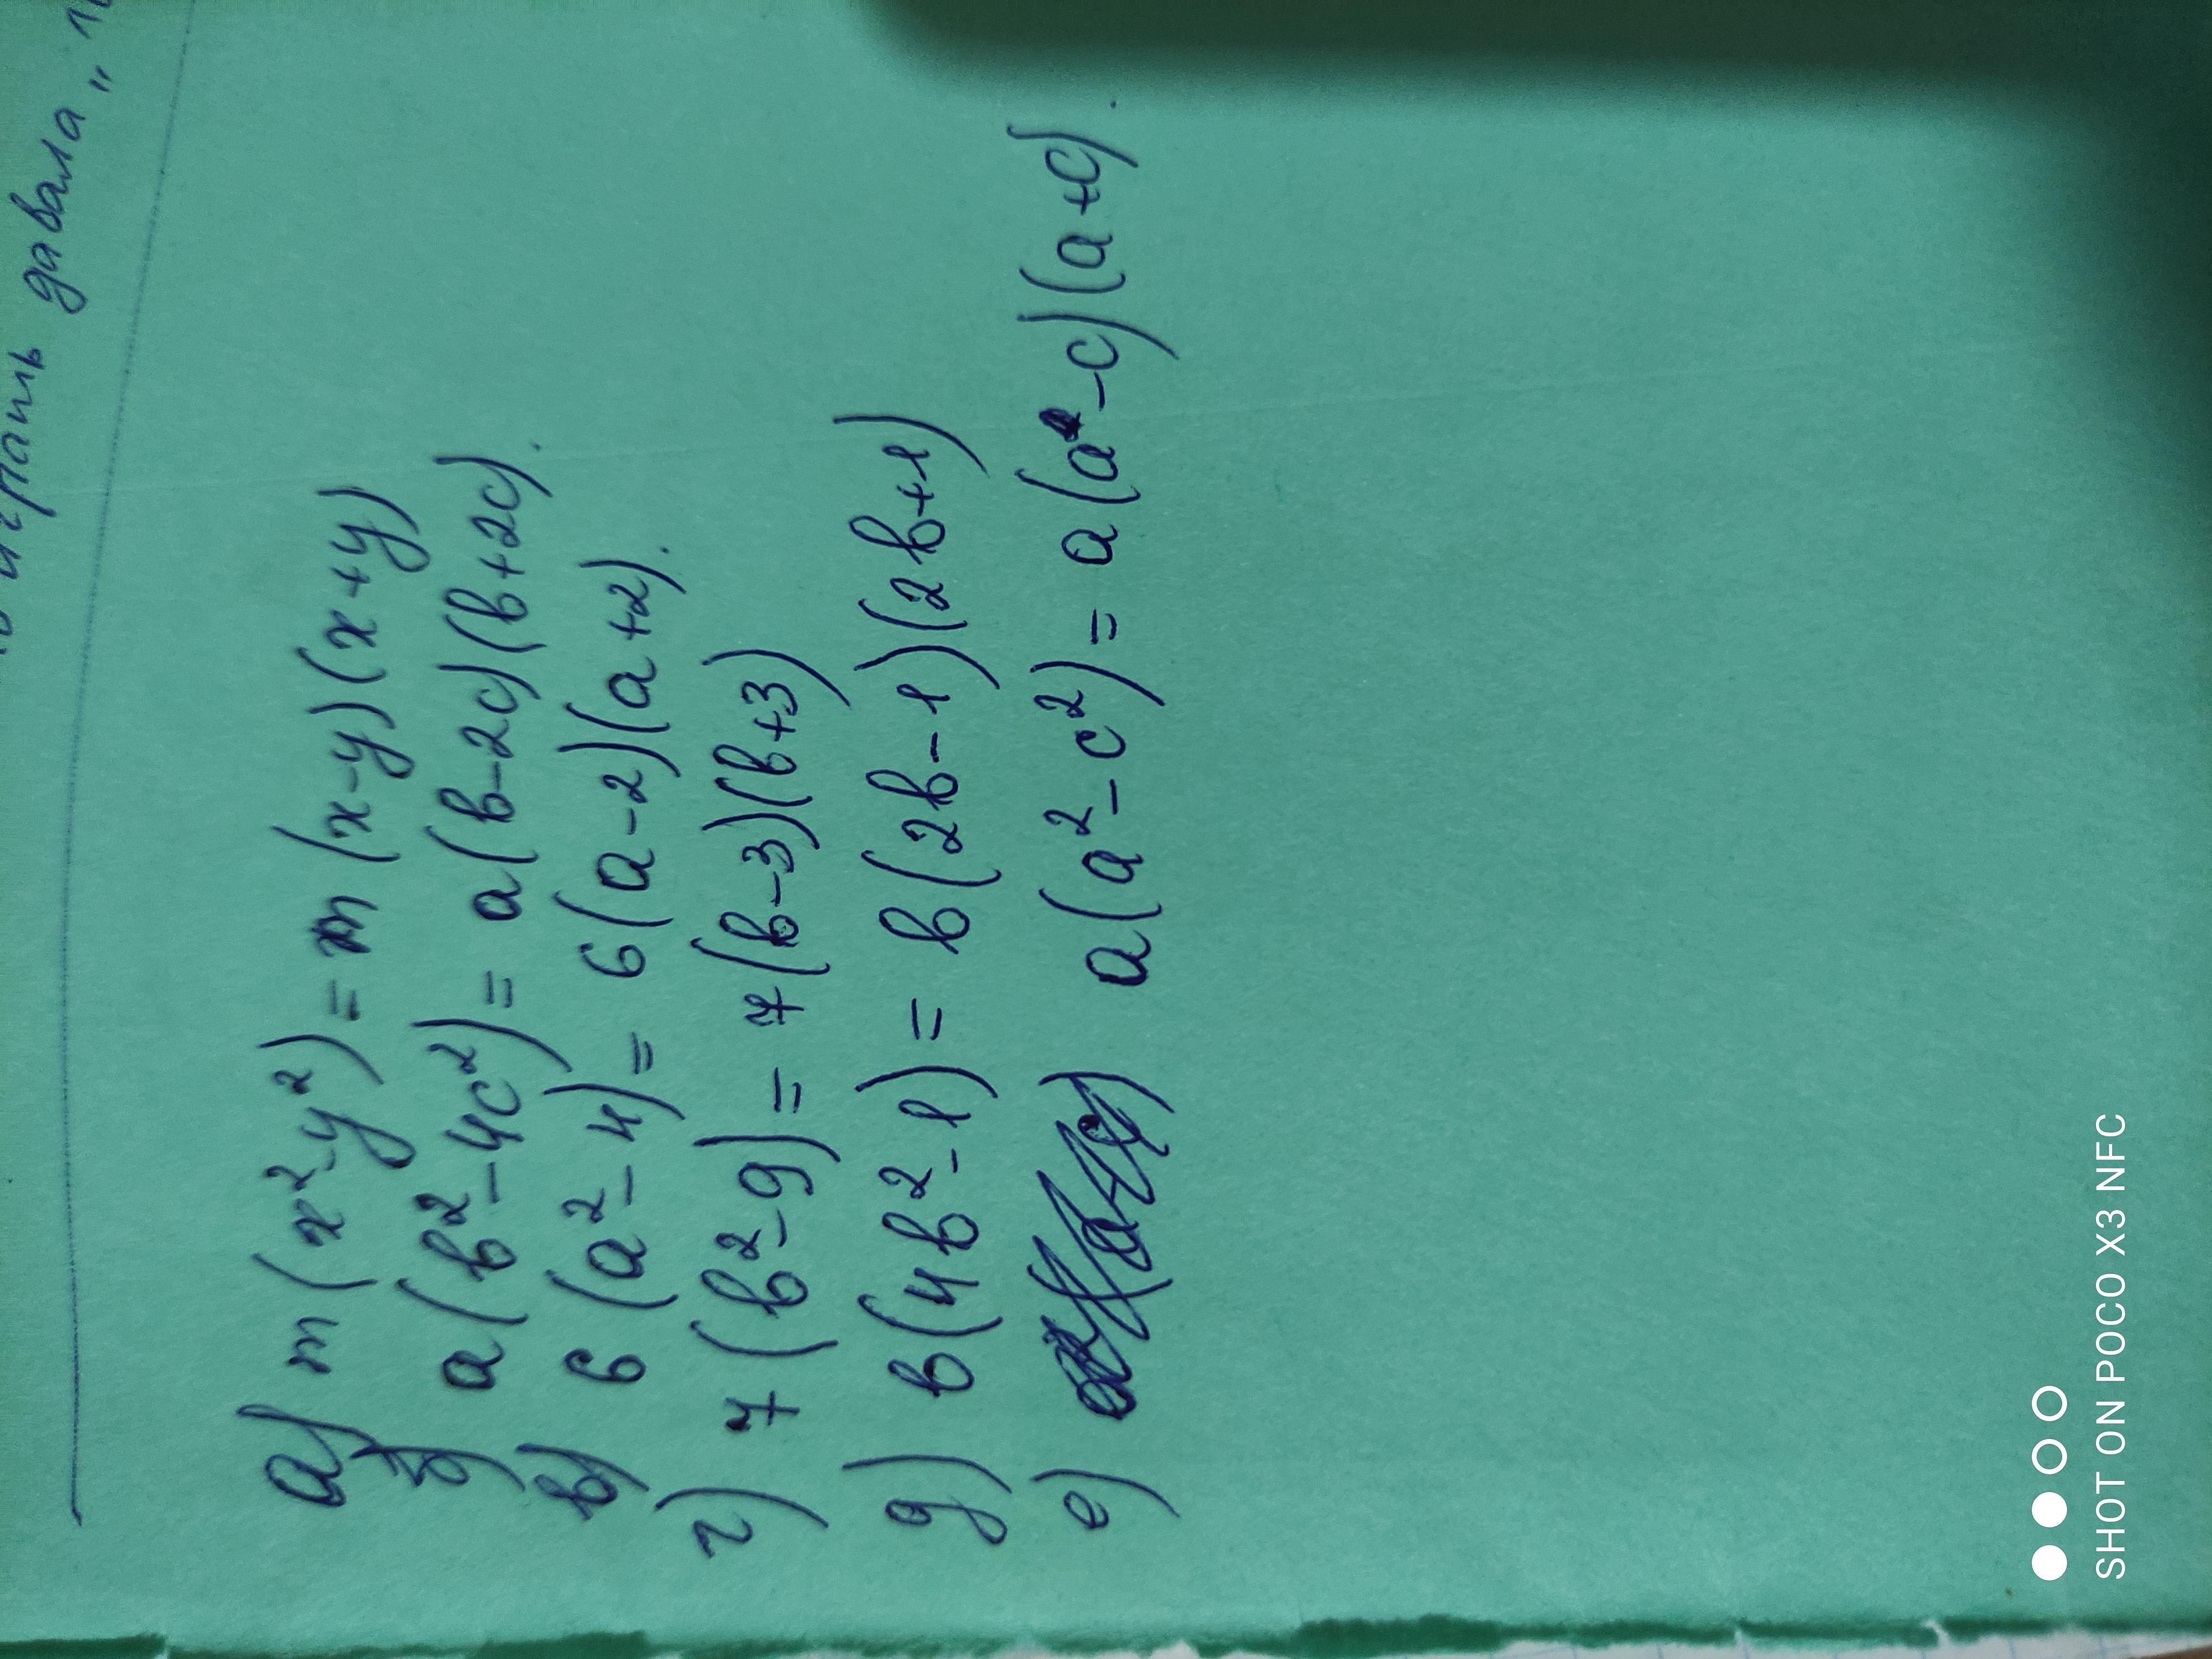 играть давала „
а) m(x²-y²)=m(x-y)(x+y)
б) a(b²-4c²)=a(b-2c)(b+2c).
в) 6(a²-4)=6(a-2)(a+2).
г) 7(b²-9)=7(b-3)(b+3)
д) b(4b²-1)=b(2b-1)(2b+1)
е) a(a²-c²)=a(a-c)(a+c).
SHOT ON POCO X3 NFC